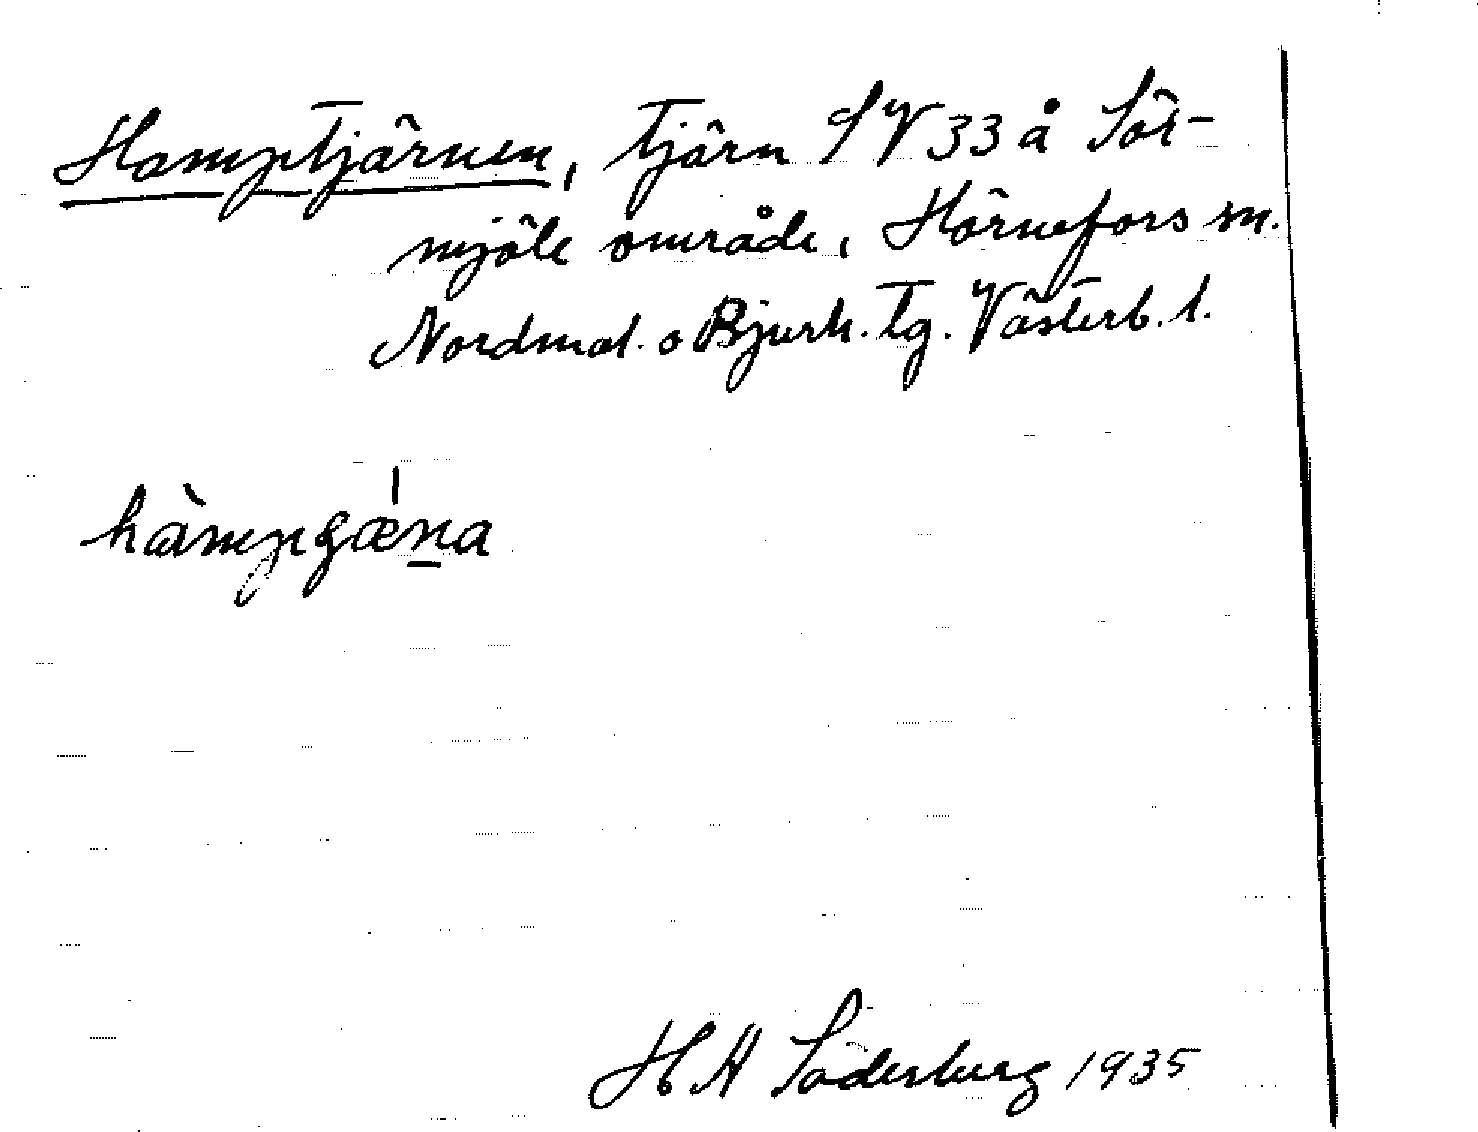 Hamptjärnen, tjärn SV 33 å Sör-
mjöle område, Hörnefors sn.
Nordmal. o Bjurh. Tg. Västerb. l.
hàmpgæ̀na
H A Söderberg 1935